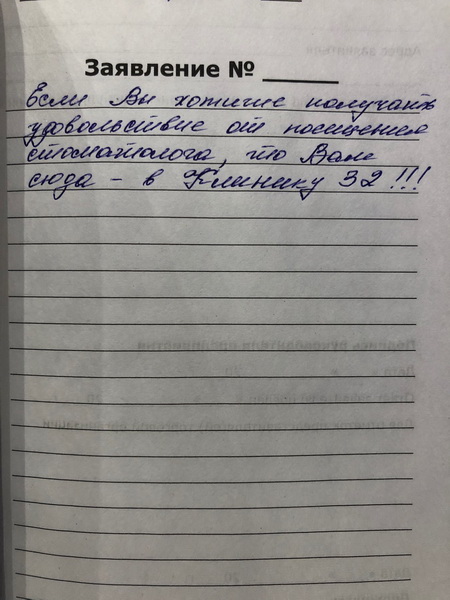 Заявление № ______
Если Вы хотите получать
удовольствие от посещения
стоматолога, то Вам
сюда - в Клинику 32 !!!